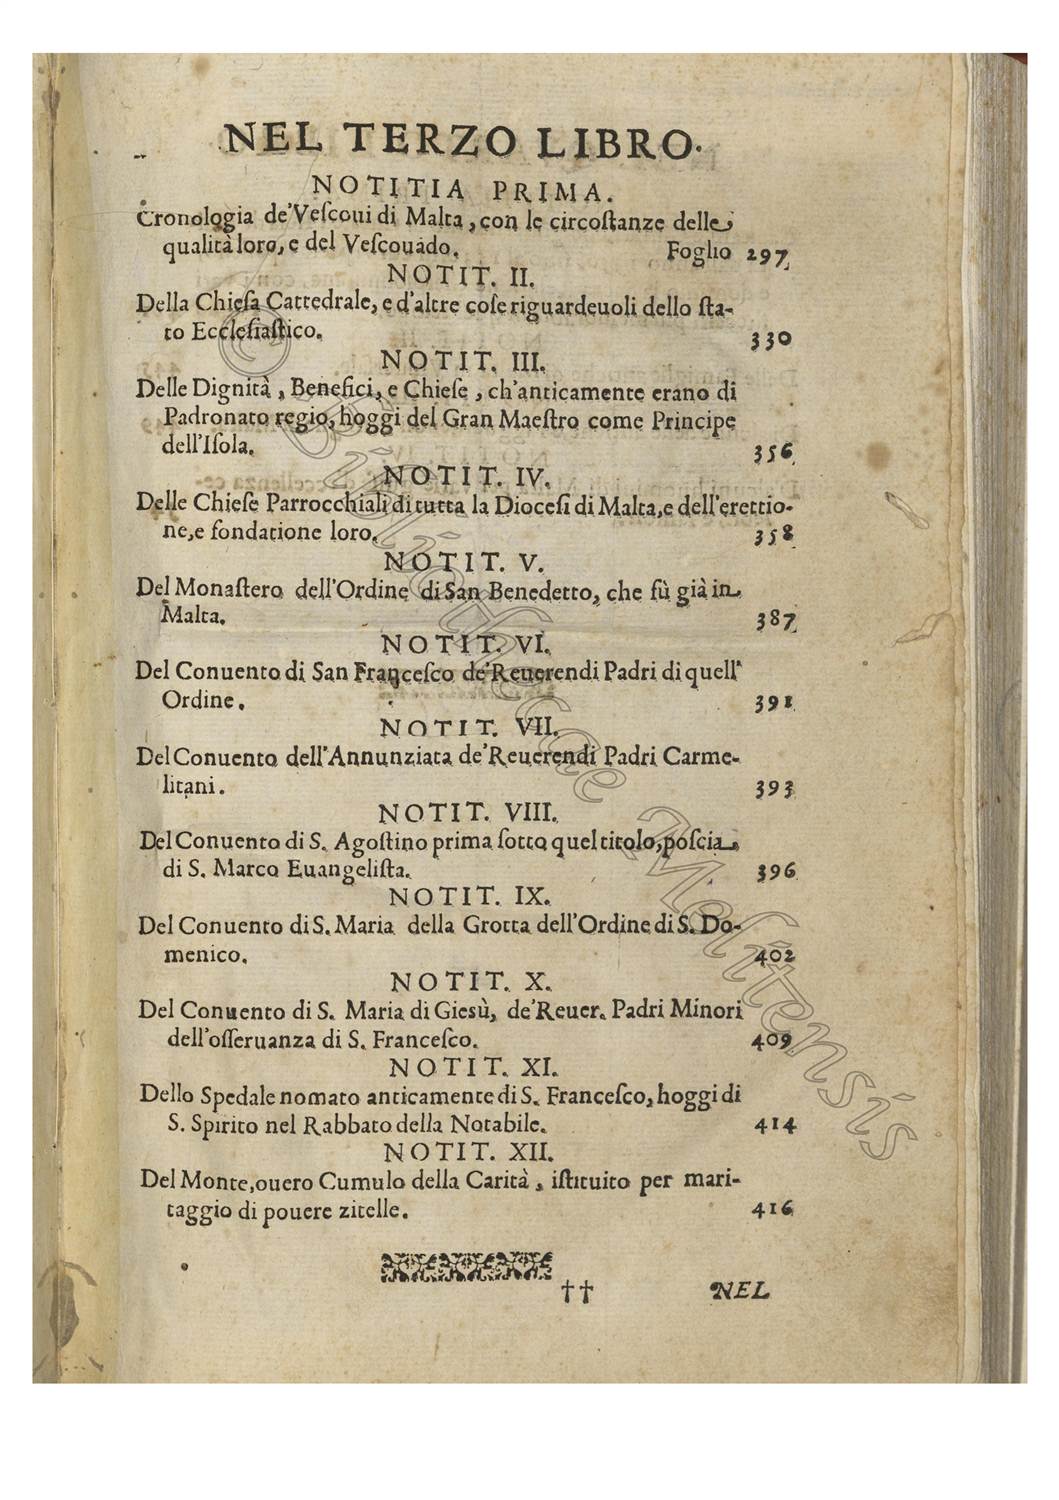 NEL TERZO LIBRO.
NOTITIA PRIMA.
Cronologia de'Veſcoui di Malta, con le circoſtanze delle
qualità loro, e del Veſcouado. Foglio 297
NOTIT. II.
Della Chieſa Cattedrale, e d'altre coſe riguardeuoli dello ſta-
to Eccleſiaſtico. 330
NOTIT. III.
Delle Dignità, Benefici, e Chieſe, ch'anticamente erano di
Padronato regio, hoggi del Gran Maeſtro come Principe
dell'Iſola. 356
NOTIT. IV.
Delle Chieſe Parrocchiali di tutta la Dioceſi di Malta, e dell'erettio-
ne, e fondatione loro. 358
NOTIT. V.
Del Monaſtero dell'Ordine di San Benedetto, che fù già in
Malta. 387
NOTIT. VI.
Del Conuento di San Franceſco de'Reuerendi Padri di quell'
Ordine. 391
NOTIT. VII.
Del Conuento dell'Annunziata de'Reuerendi Padri Carme-
litani. 393
NOTIT. VIII.
Del Conuento di S. Agoſtino prima ſotto quel titolo, poſcia
di S. Marco Euangeliſta. 396
NOTIT. IX.
Del Conuento di S. Maria della Grotta dell'Ordine di S. Do-
menico. 402
NOTIT. X.
Del Conuento di S. Maria di Giesù, de'Reuer. Padri Minori
dell'oſſeruanza di S. Franceſco. 409
NOTIT. XI.
Dello Spedale nomato anticamente di S. Franceſco, hoggi di
S. Spirito nel Rabbato della Notabile. 414
NOTIT. XII.
Del Monte, ouero Cumulo della Carità, iſtituito per mari-
taggio di pouere zitelle. 416
†† NEL
© Bibliothecae Melitensis